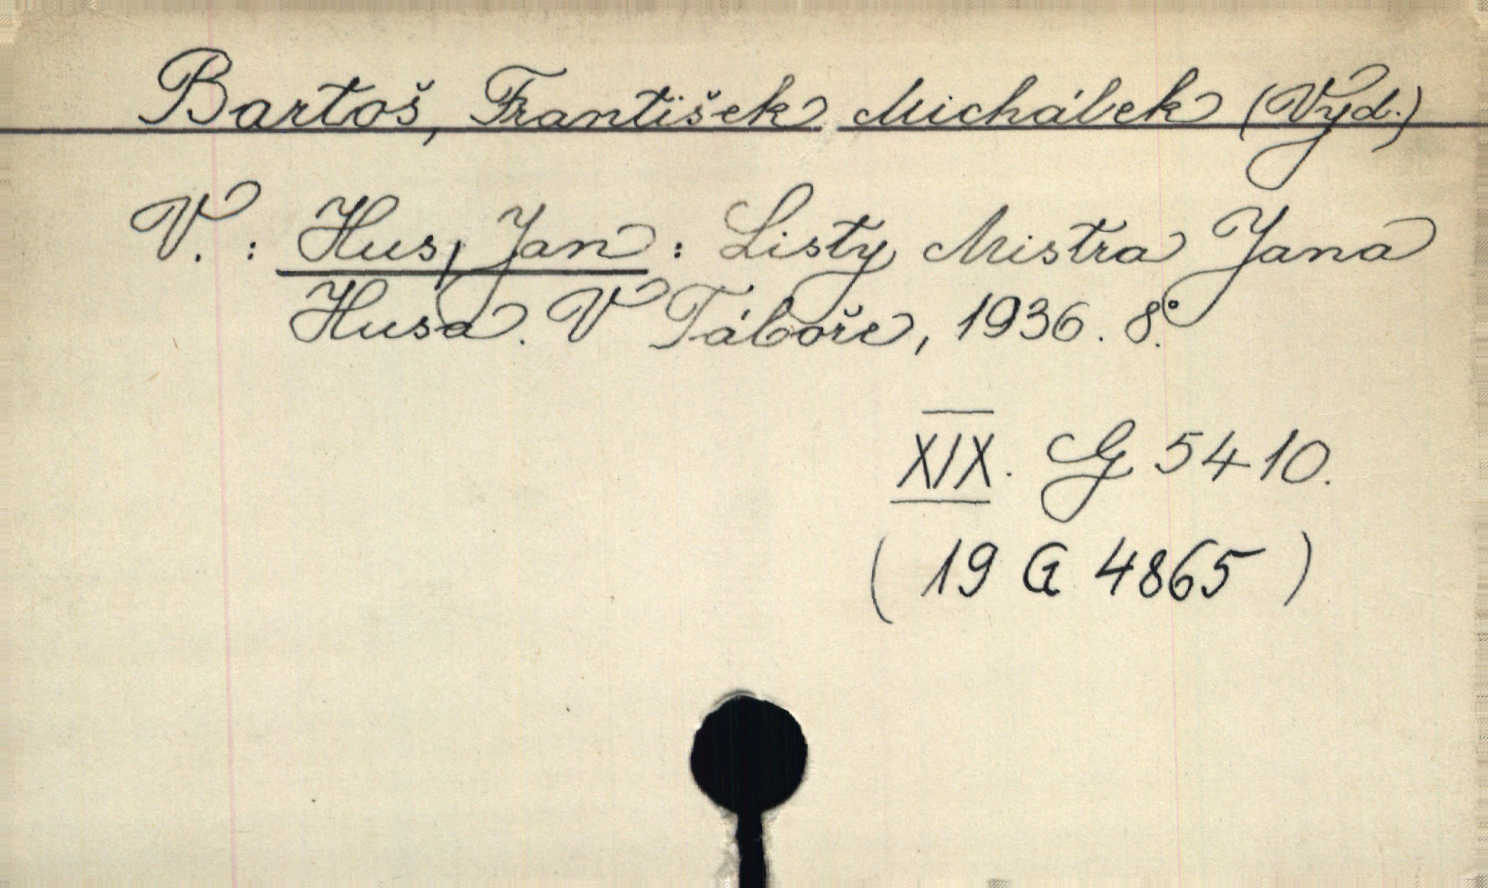 Bartoš, František Michálek (Vyd.)
V. : Hus, Jan : Listy Mistra Jana
Husa. V Táboře, 1936. 8°.
XIX. G 5410.
( 19 G 4865 )